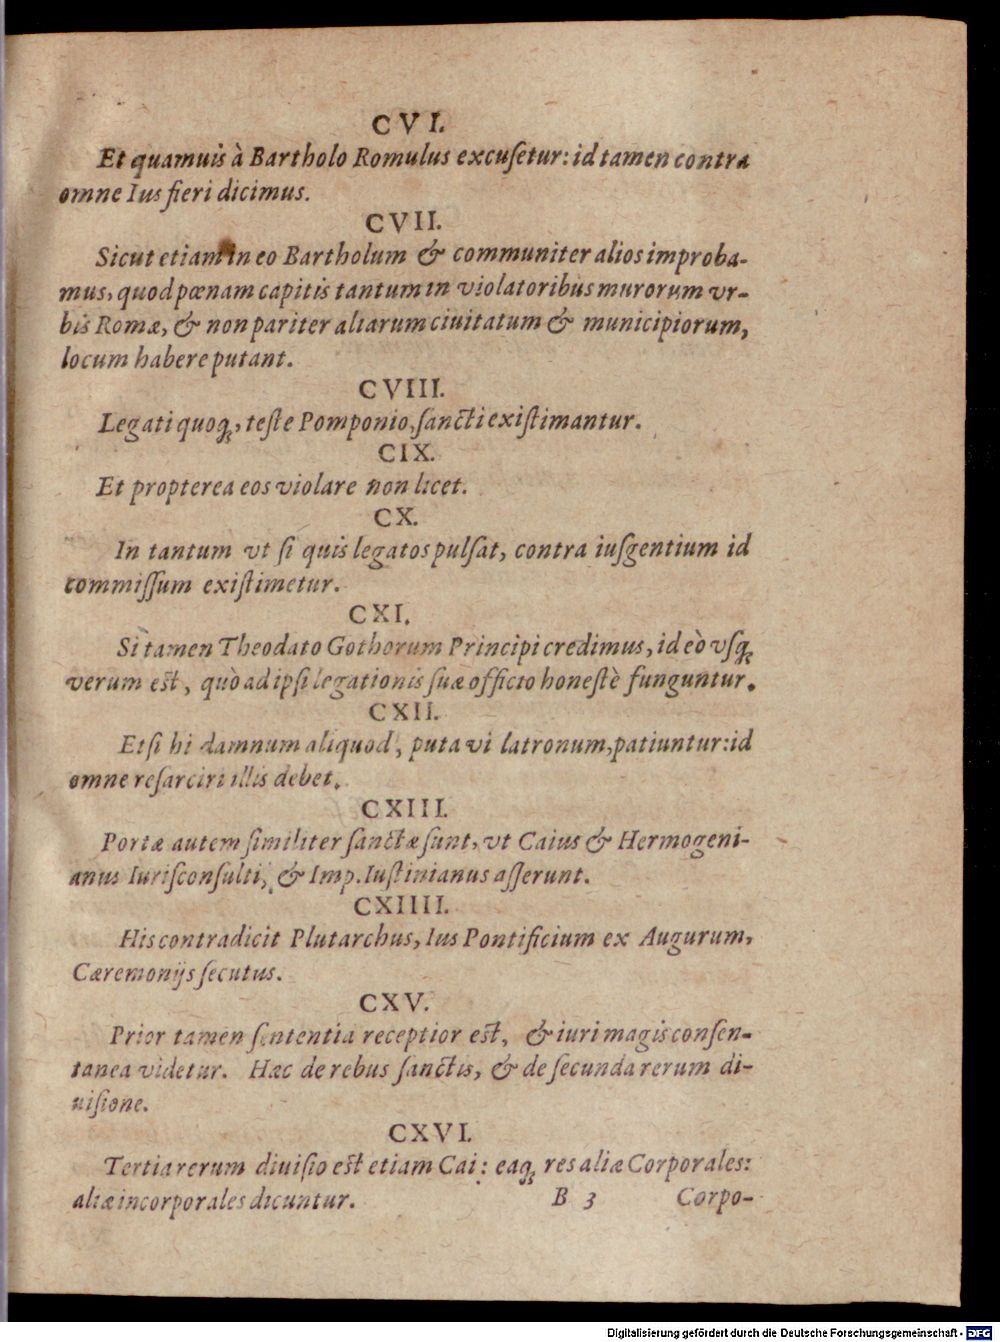 CVI.
Et quamuis à Bartholo Romulus excuſetur: id tamen contra
omne Ius fieri dicimus.
CVII.
Sicut etiam in eo Bartholum & communiter alios improba-
mus, quod pœnam capitis tantum in violatoribus murorum vr-
bis Romæ, & non pariter aliarum ciuitatum & municipiorum,
locum habere putant.
CVIII.
Legati quoq́ꝫ, teſte Pomponio, ſancti exiſtimantur.
CIX.
Et propterea eos violare non licet.
CX.
In tantum vt ſi quis legatos pulſat, contra iuſgentium id
commiſſum exiſtimetur.
CXI.
Si tamen Theodato Gothorum Principi credimus, id eò vſq́ꝫ
verum est, quò ad ipſi legationis ſuæ officto honeſtè funguntur.
CXII.
Etſi hi damnum aliquod, puta vi latronum, patiuntur: id
omne reſarciri illis debet.
CXIII.
Portæ autem ſimiliter ſanctæ ſunt, vt Caius & Hermogeni-
anus Iuriſconſulti, & Imp. Iuſtinianus aſſerunt.
CXIIII.
His contradicit Plutarchus, Ius Pontificium ex Augurum,
Cæremonijs ſecutus.
CXV.
Prior tamen ſententia receptior est, & iuri magis conſen-
tanea videtur. Hæc de rebus ſanctis, & de ſecunda rerum di-
uiſione.
CXVI.
Tertia rerum diuiſio est etiam Cai: eaq́ꝫ res aliæ Corporales:
aliæ incorporales dicuntur. B 3 Corpo-
Digitalisierung gefördert durch die Deutsche Forschungsgemeinschaft - DFG